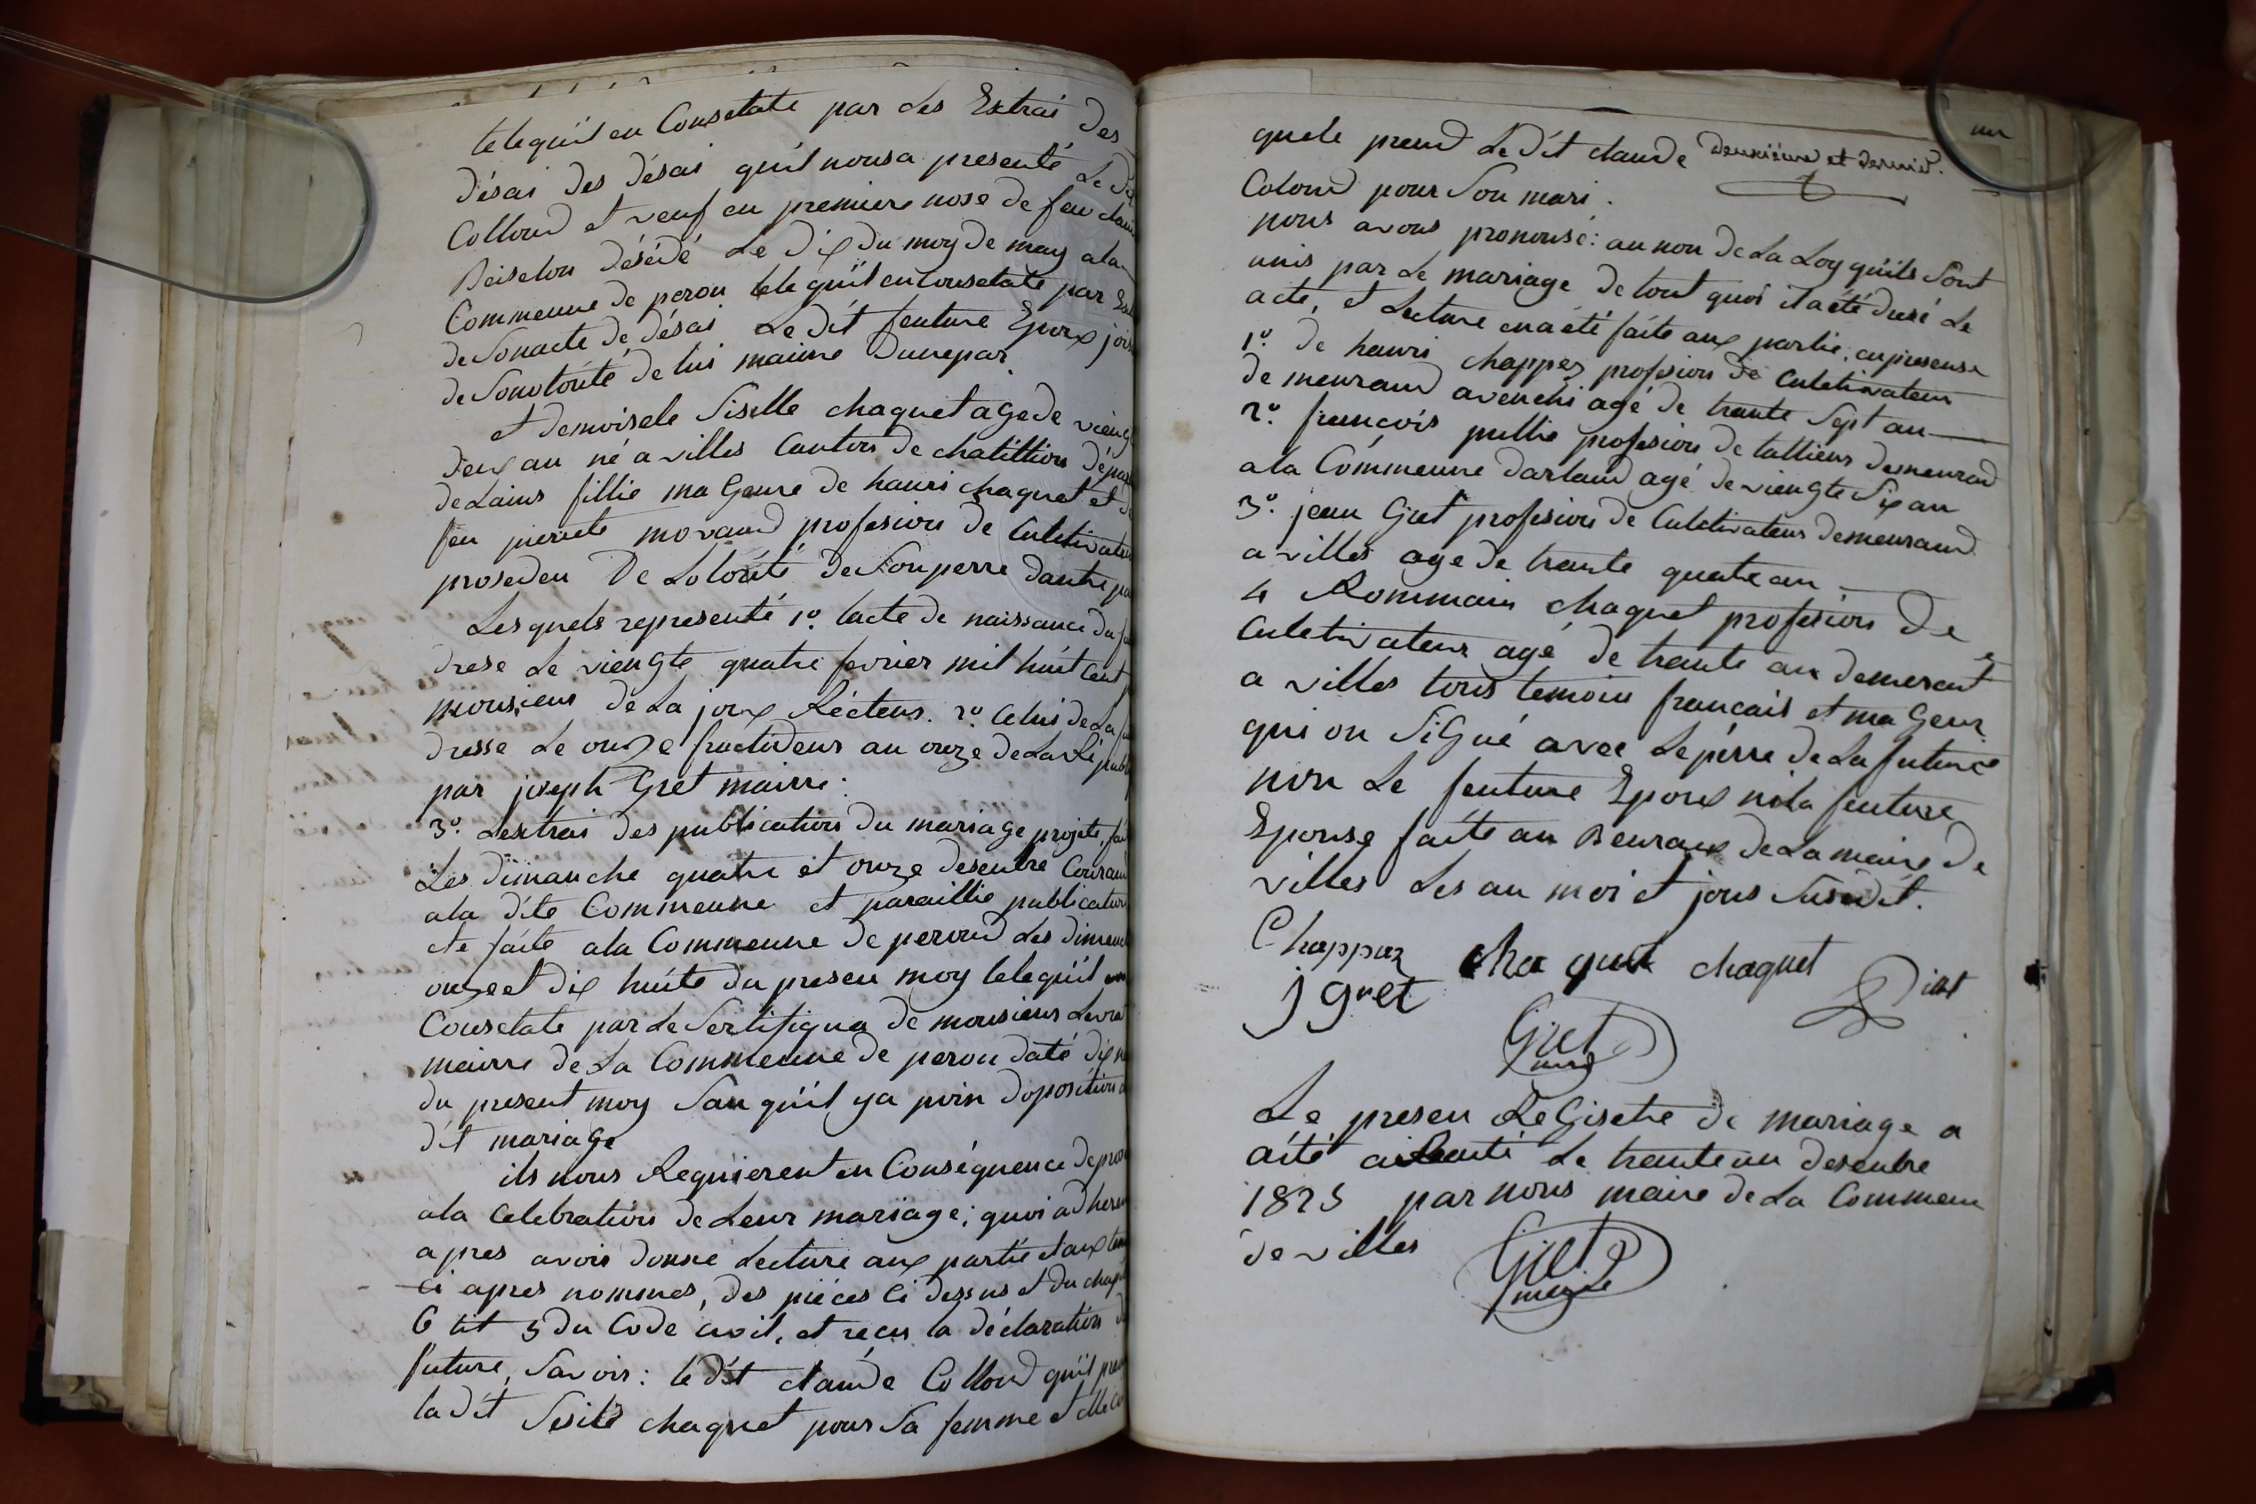 telequil en Consetate par des Extrai Des
désai des désai quil nousa presenté Le Dit
Colloud et veuf en premiere nose de feu
Beiseton désédé Le Dix du moy de may ala
Commeune de perou tele quil en Consetate par
de Sonacte de désai Le dit feuture Epoux
de Sonotorité de lui maime Dunepar.
et demoisele Siselle chaquet agede viengt
deux au né a villes Canton de chatillion
deLains fillie ma Geure de hanri chaquet et
feu pierrete movaud profesion de Culetivateur
prosedeu De Lotorité deSonperre dautre par
Lesquels represente 1º. lacte de naissance du
drese Le viengte quatre fevrier mil huit Cent
monsieur de La joux Récteur. 2º. Celui de La
dresse Le onze fructideur au onze deLaRé
par joseph Gret mairre:
3º. Lextrai des publication du mariage projete,
Les dimanche quatre et onze desenbre Couraud
ala dite Commeune et paraillie publication
éte faite ala Commeune de peroud Les dimanche
onze et dix huite du preseu moy telequil en
Consetate par Le Sertifiqua de monsieur
mairre de La Commeune de perou daté
du present moy San quil ya poin doposition
dit mariage
ils nous Requierent en Conséquence de
ala Celebration de Leur mariage; quoi adherent
apres avoir donne Lecture aux partie et aux
ci apres nommes, des piéces Ci dessus et du
6 tit 5 du Code civil, et recus la déclaration
future, Savoir: le dit claude Colloud quil
la dit Sesile chaquet pour Sa femme et elle
un
quele preud Le dit claude Deuxieme et dernier.
Coloud pour Son mari.
nous avons prononsé: au non de La Loy quils Sont
unis par Le mariage de tout quoi ila été dresé Le
acte, et Lecture ena été faite aux partie; enpresense
1º. De hanri Chappez profesion de Culetivateur
demeuraud avenchi agé de trante Sept au
2º. francois pullie profesion de tallieur demeuraud
ala Commeune darlaud agé de viengte Six au
3º. jean Gret profesion de Culetivateur demeuraud
a villes age de trante quatre an
4 Rommain chaquet profesion De
Culetivateur agé de trante au demerent
a villes tous temoin francais et ma Geur
qui on Signé avec Le pérre de La future
non Le feuture Epoux nila feuture
Epouse faite au Beuraux de La maire de
villes Les au moi et jour Susdit.
Chappaz cha quet chaquet
j gret
Gret
maire
Le preseu ReGisetre de mariage a
aité Le tranteun desenbre
1825 par nous maire de La Commeun
de villes Gret
maire